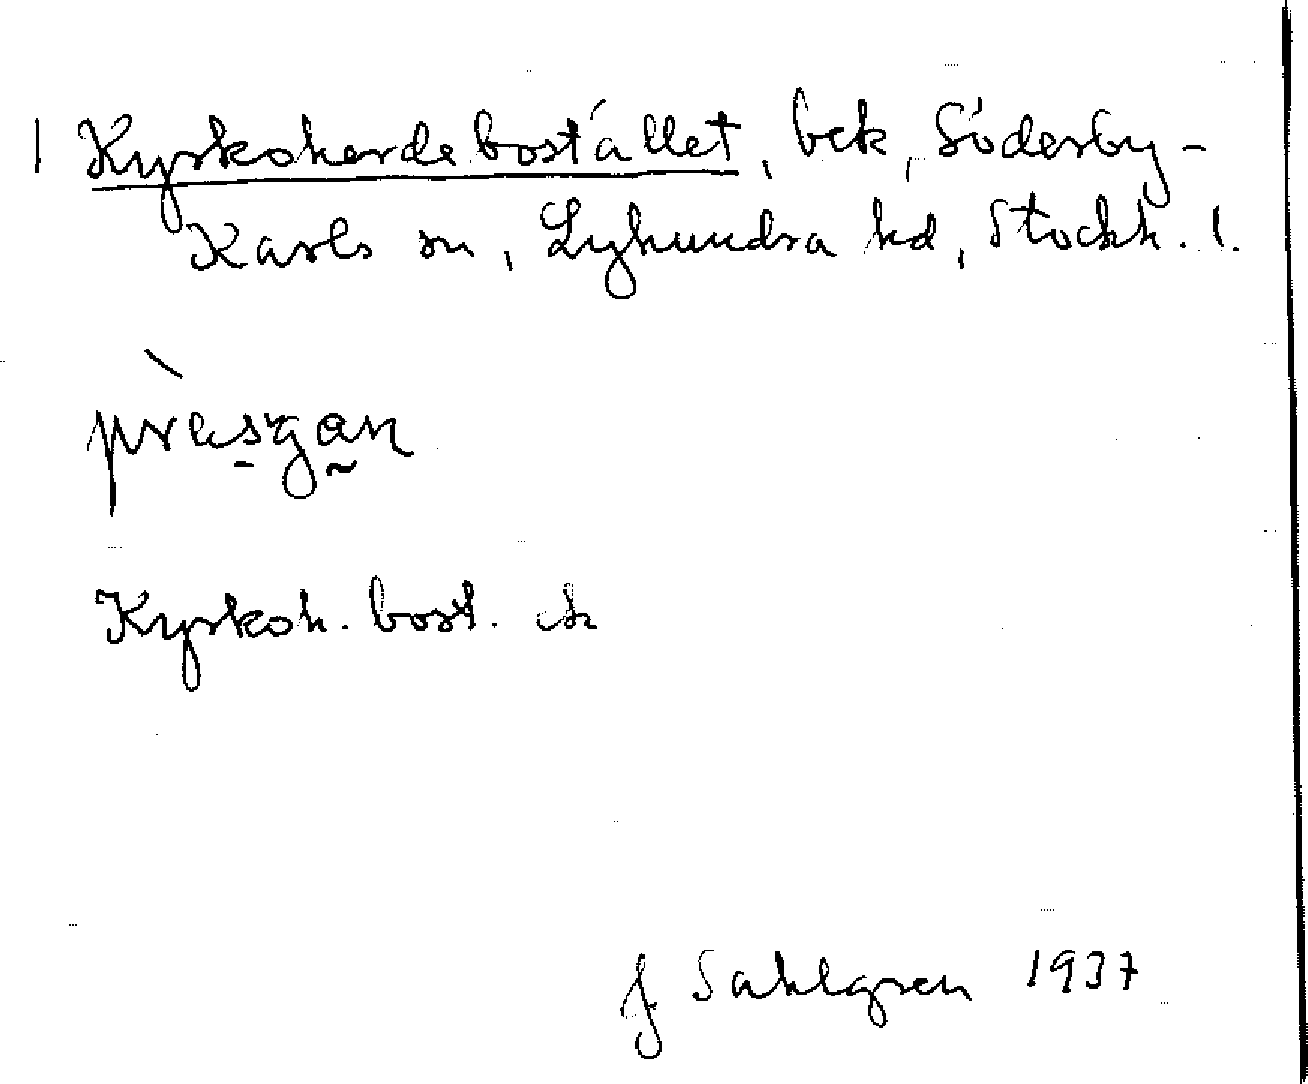 1 Kyrkoherdebostället, bek, Söderby-
Karls sn, Lyhundra hd, Stockh. l.
prèsgan
Kyrkoh. bost. ek
J Sahlgren 1937